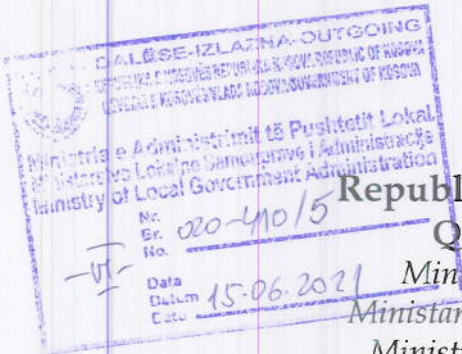 DALËSE-IZLAZNA-OUTGOING
Ministria e Administrimit të Pushtetit Lokal
Ministarstvo Lokalne Samouprave i Administracije
Ministry of Local Government Administration
Nr.
Br. 020-410/5
No.
-VI-
Data
Datum 15.06.2021
Republ
Q
Min
Ministar
Minist